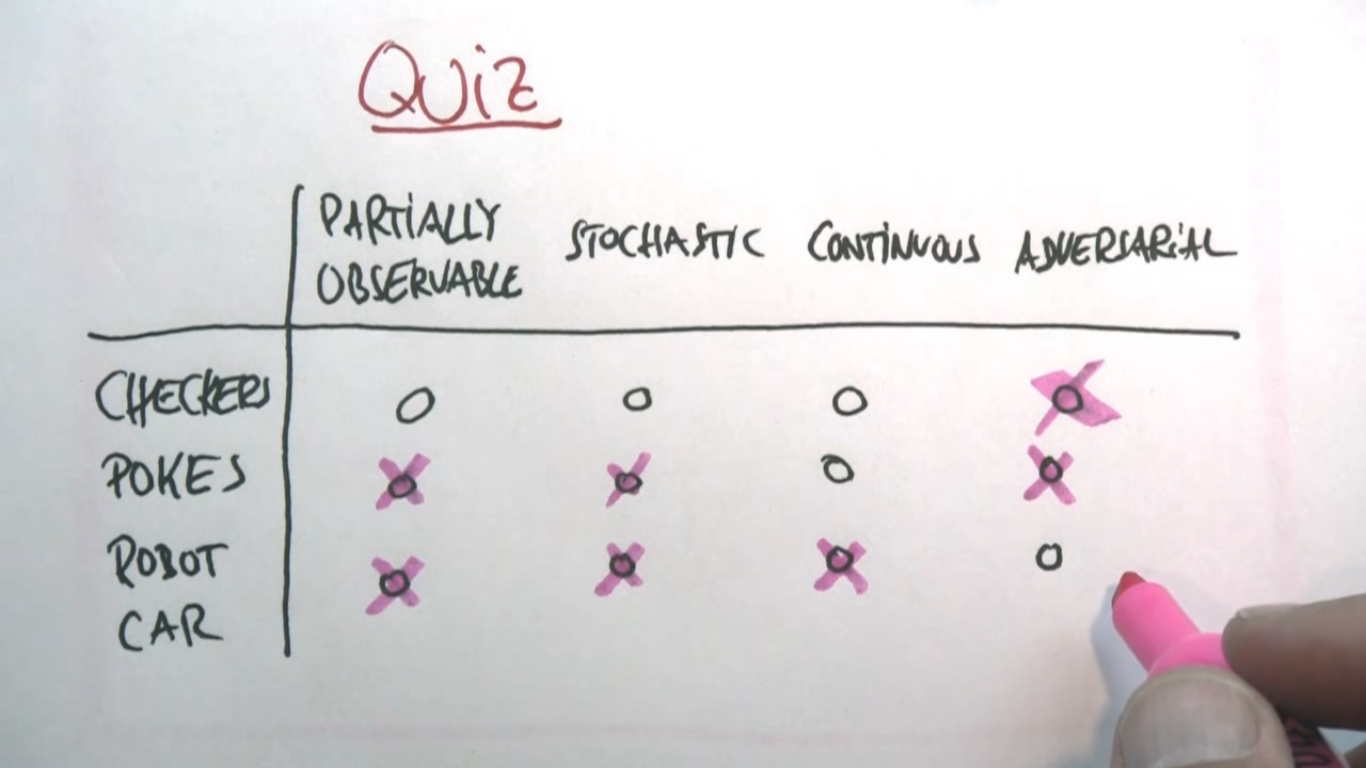 QUiZ
PARTiALLY
OBSERVABLE
STOCHASTIC
CONTiNUOUS
ADVERSARiAL
CHECKERS
POKES
ROBOT
CAR